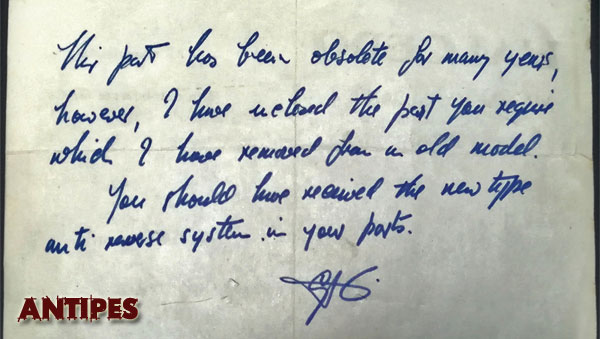 This part has been obsolete for many years,
however, I have inclosed the part you require
which I have removed from an old model.
You should have received the new type
anti reverse system in your parts.
ANTIPES